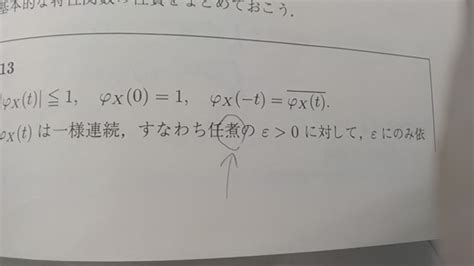 基本的な特性関数の性質をまとめておこう.
13
|φX(t)| ≦ 1, φX(0) = 1, φX(−t) = \overline{φX(t)}.
φX(t) は一様連続, すなわち任煮の ε > 0 に対して, ε にのみ依